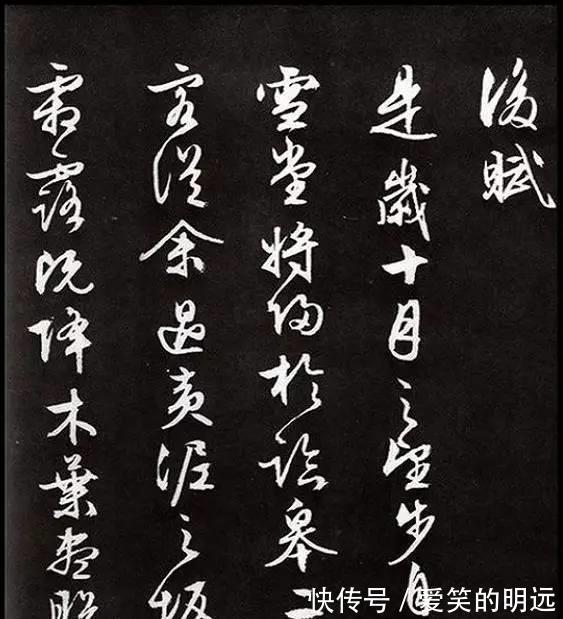 後賦
是歲十月之望步自
雪堂將歸於臨皋二
客從余過黃泥之坂
霜露既降木葉盡脫
快传号 / 爱笑的明远